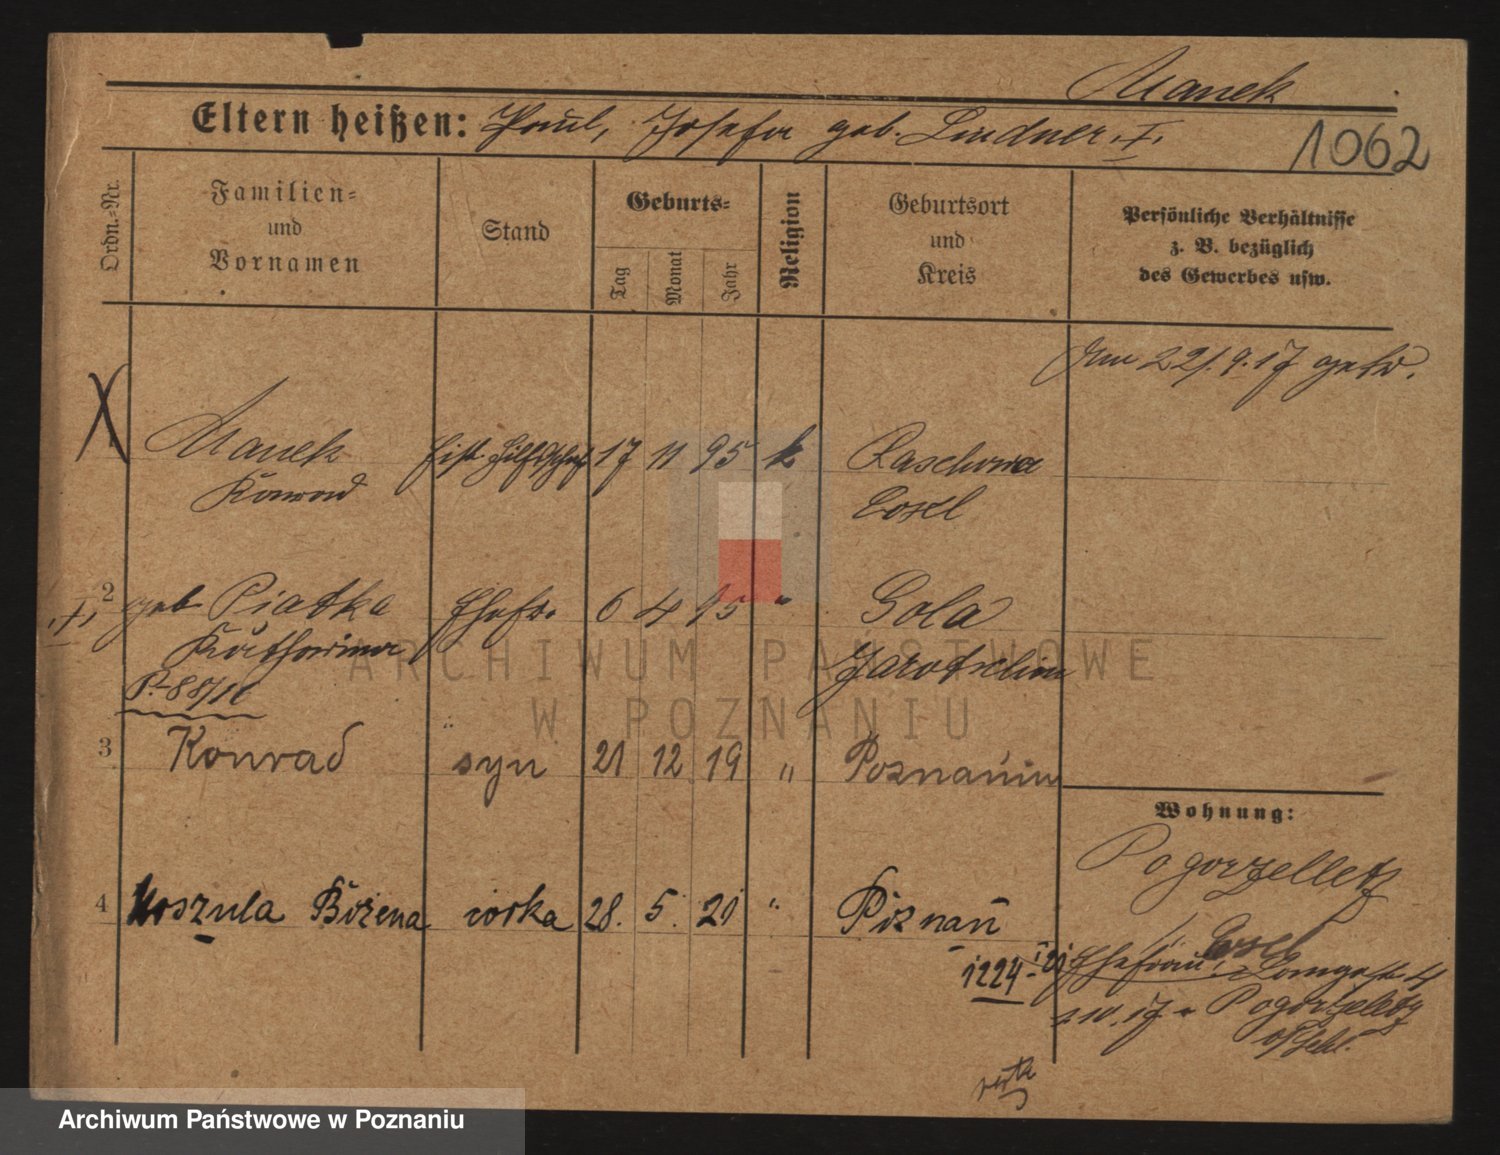 Manek
Eltern heißen: Paul, Josefa geb. Lindner. I.
1062
Ordn.-Nr.
Familien-
und
Vornamen
Stand
Geburts-
Tag
Monat
Jahr
Religion
Geburtsort
und
Kreis
Persönliche Verhältnisse
z. B. bezüglich
des Gewerbes usw.
Am 22.9.17 getr.
Manek 17 11 95 k Raschowa
Konrad Cosel
2 geb Piatka Ehefr. 6 4 95 " Gola
Katharina Jarotschin
3 Konrad syn 21 12 19 " Poznaniu
Wohnung:
Pogorzelletz
4 Urszula Bożena córka 28. 5. 21 " Poznań
Cosel
1224 Ehefrau: Langestr 4
10.17 Pogorzelletz
ARCHIWUM PAŃSTWOWE
W POZNANIU
Archiwum Państwowe w Poznaniu